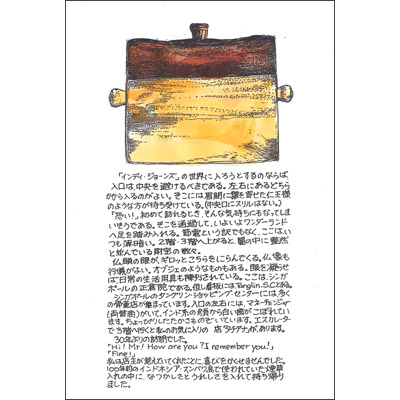 「インディ・ジョーンズ」の世界に入ろうとするのならば、
入口は中央を避けるべきである。左右にあるどちら
から入るのがよい。そこには眉間に皺を寄せた仁王様
のような方が待ち受けている。(中央口にスリルはない。)
「恐い!」初めて訪れるとき、そんな気持ちにもなってしま
いそうである。そこを通過して、いよいよワンダーランド
へ足を踏み入れる。節電という訳でもなく、ここは、い
つも薄暗い。2階・3階へ上がると、闇の中に整然
と並んでいる財宝の数々。
仏頭の眼が、ギロッとこちらをにらんでくる。仏像も
行儀がいい。オブジェのようなものもある。眼を凝らせ
ば、日常の生活用具も陳列されている。ここは、シンガ
ポールの正倉院である。但し看板には「Tanglin.S.C」とある。
シンガポールのタングリン・ショッピング・センターには、多く
の骨董店が集まっています。入口の左右には、マネーチェンジャー
(両替商)がいて、インド系の光顔から白い歯がこぼれてい
ます。ちょっぴりしたたかさものぞいています。エスカレータ
で3階へ行くと私のお気に入りの店「ラチアナ」があります。
30年ぶりの訪問でした。
「Hi! Mr! How are you? I remember you!」
「Fine!」
私は店主が覚えていてくれたことに、喜びをかくせませんでした。
100年前のインドネシア・スンバワ島で使われていた煙草
入れの中に、なつかしさとうれしさを入れて持ち帰り
ました。